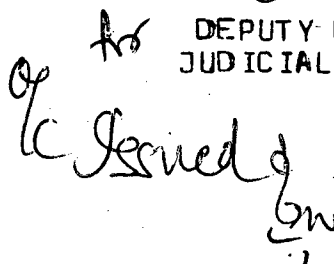 for DEPUTY
JUDICIAL
O/C Issued